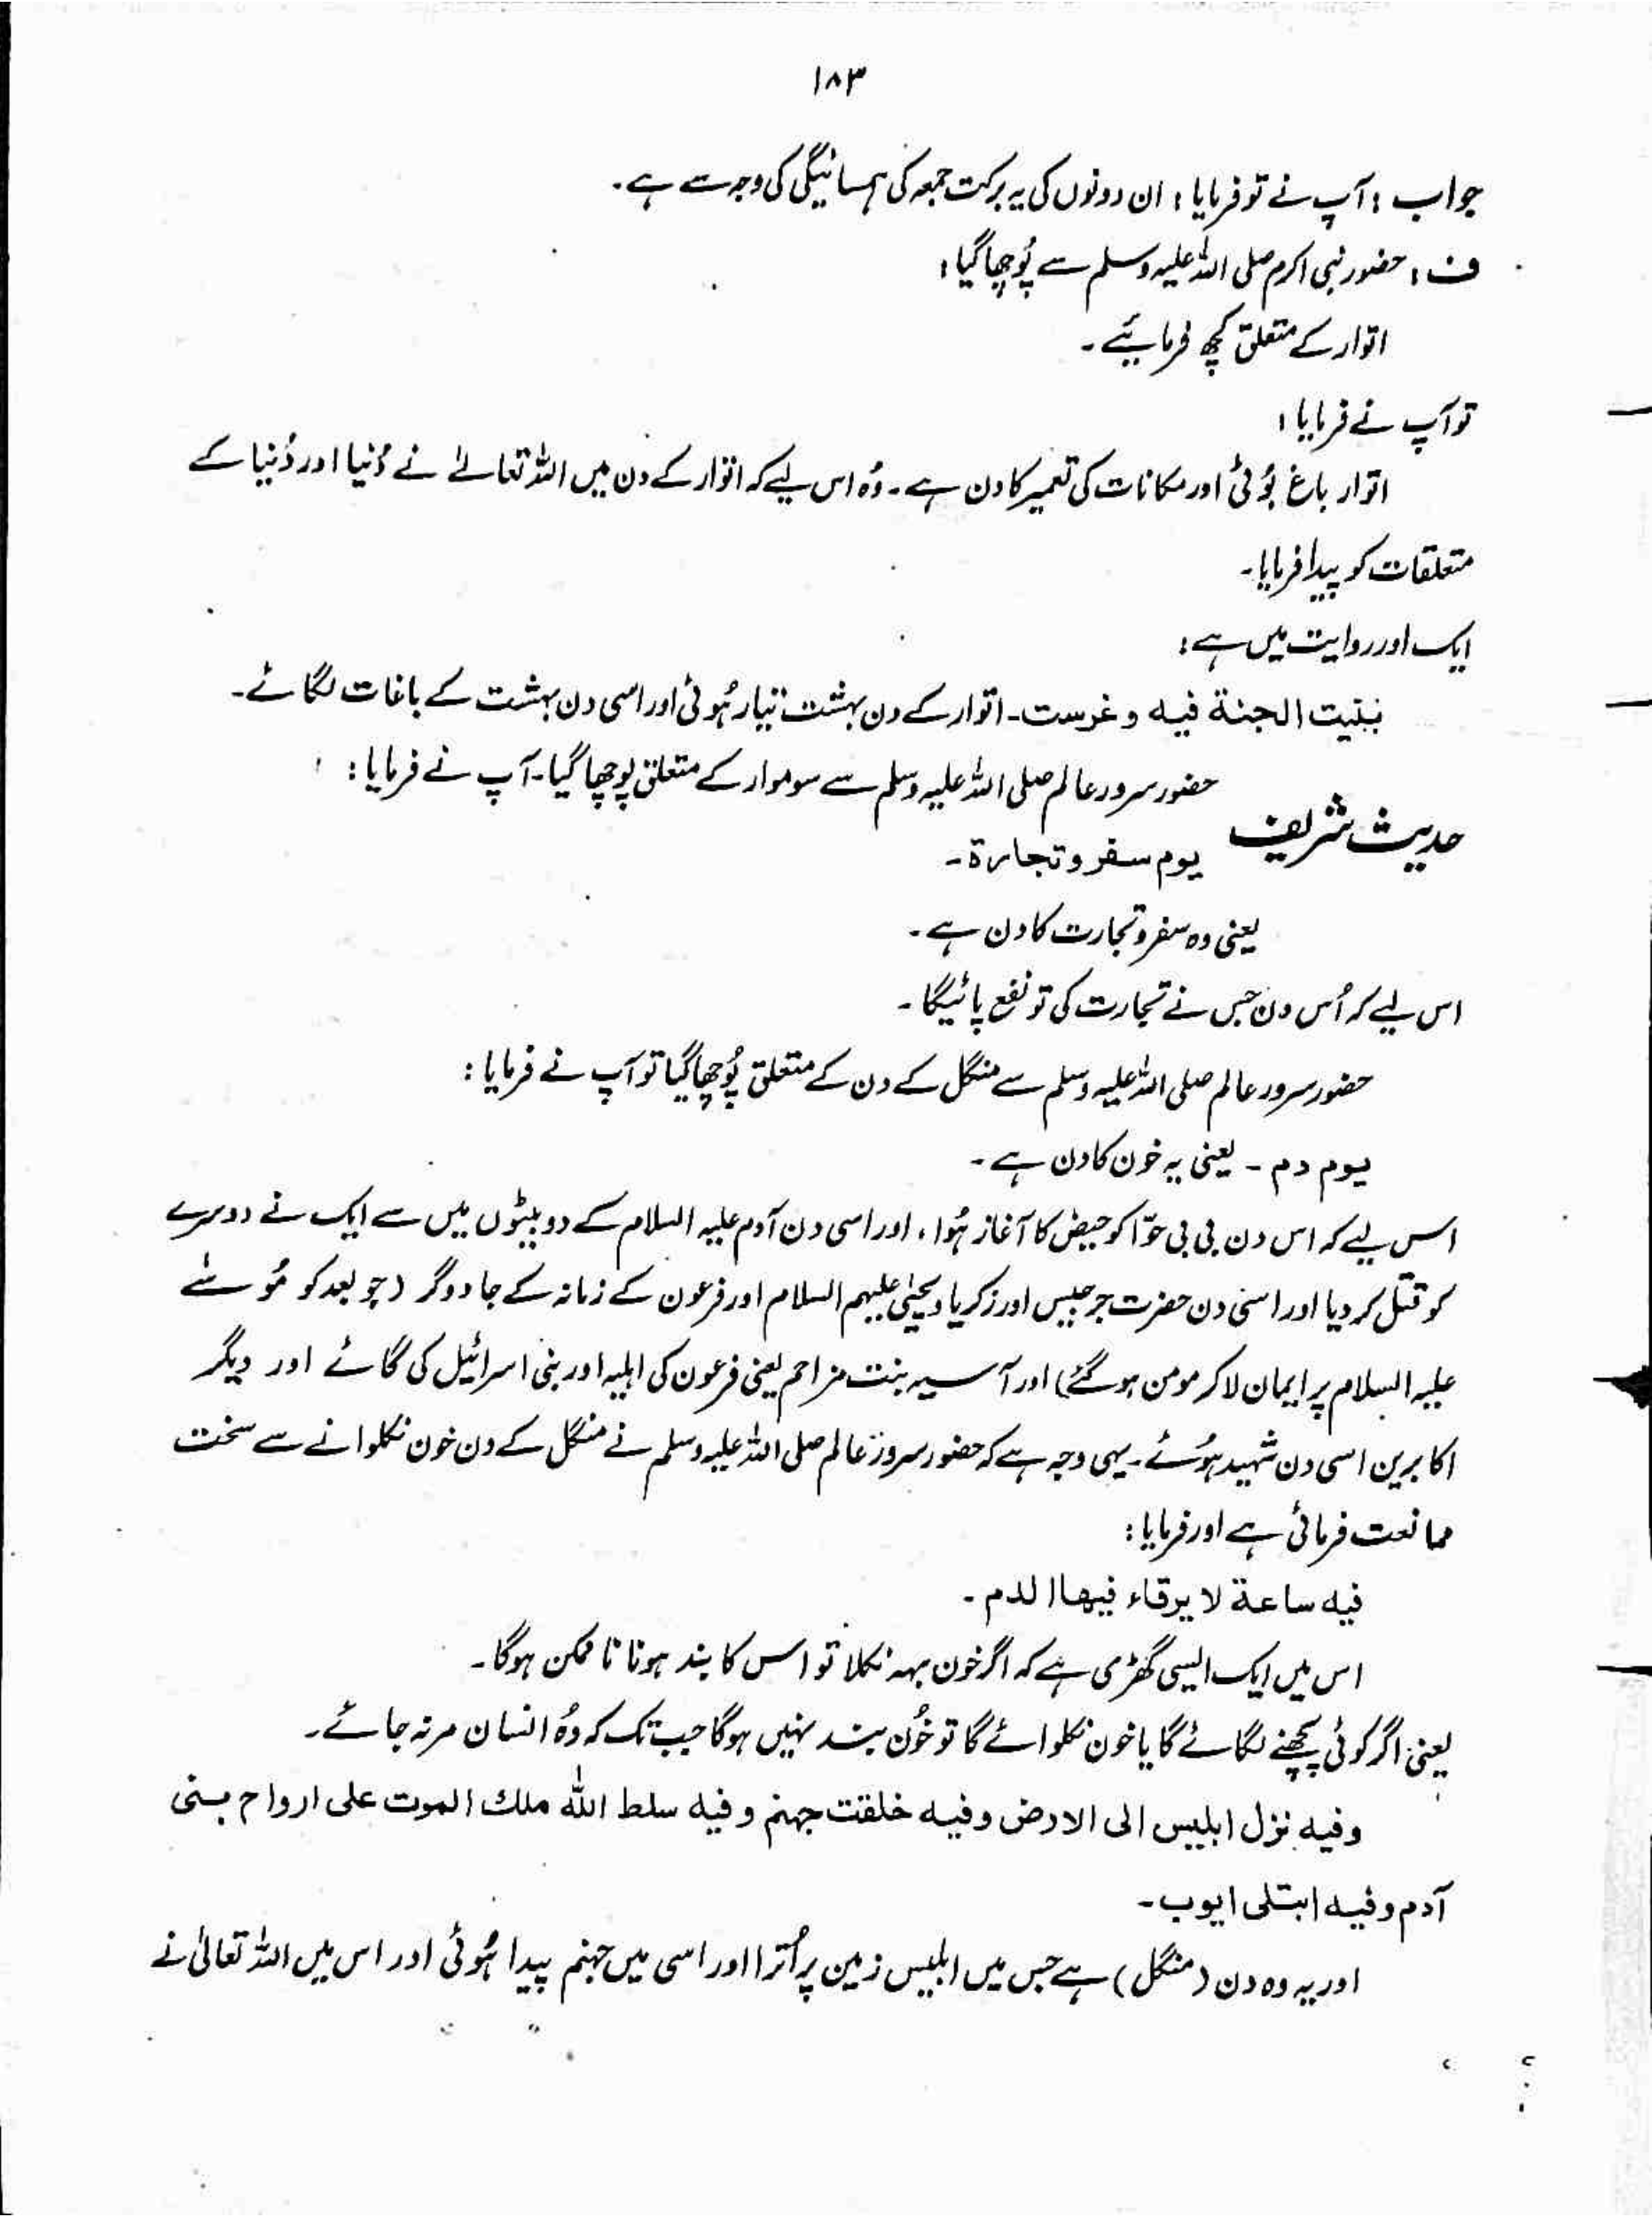 ۱۸۳
جواب : آپ نے تو فرمایا : ان دونوں کی یہ برکت جمعہ کی ہمسائیگی کی وجہ سے ہے۔
ف : حضور نبی اکرم صلی اللہ علیہ وسلم سے پُوچھا گیا :
اتوار کے متعلق کچھ فرمائیے۔
تو آپ نے فرمایا :
اتوار باغ بُوئی اور مکانات کی تعمیر کا دن ہے۔ وُہ اس لیے کہ اتوار کے دن میں اللہ تعالےٰ نے دُنیا اور دُنیا کے
متعلقات کو پیدا فرمایا۔
ایک اور روایت میں ہے :
بنیت الجنة فیه و غرست۔ اتوار کے دن بہشت تیار ہُوئی اور اسی دن بہشت کے باغات لگائے۔
حضور سرور عالم صلی اللہ علیہ وسلم سے سوموار کے متعلق پوچھا گیا۔ آپ نے فرمایا :
حدیث شریف
یوم سفر و تجارة۔
یعنی وہ سفر و تجارت کا دن ہے۔
اس لیے کہ اُس دن جس نے تجارت کی تو نفع پائیگا۔
حضور سرور عالم صلی اللہ علیہ وسلم سے منگل کے دن کے متعلق پُوچھا گیا تو آپ نے فرمایا :
یوم دم ۔ یعنی یہ خون کا دن ہے۔
اس لیے کہ اس دن بی بی حوّا کو حیض کا آغاز ہُوا، اور اسی دن آدم علیہ السلام کے دو بیٹوں میں سے ایک نے دوسرے
کو قتل کر دیا اور اسی دن حضرت جرجیس اور زکریا و یحییٰ علیہم السلام اور فرعون کے زمانہ کے جادوگر (جو بعد کو مُوسٰے
علیہ السلام پر ایمان لا کر مومن ہو گئے) اور آسیہ بنت مزاحم یعنی فرعون کی اہلیہ اور بنی اسرائیل کی گائے اور دیگر
اکابرین اسی دن شہید ہُوئے۔ یہی وجہ ہے کہ حضور سرور عالم صلی اللہ علیہ وسلم نے منگل کے دن خون نکلوانے سے سخت
ممانعت فرمائی ہے اور فرمایا :
فیه ساعة لا یرقاء فیها الدم۔
اس میں ایک ایسی گھڑی ہے کہ اگر خون بہہ نکلا تو اس کا بند ہونا نا ممکن ہوگا۔
یعنی اگر کوئی پچھنے لگائے گا یا خون نکلوائے گا تو خُون بند نہیں ہوگا جب تک کہ وُہ انسان مر نہ جائے۔
وفیه نزل ابلیس الی الارض وفیه خلقت جهنم و فیه سلط الله ملك الموت علی ارواح بنی
آدم وفیه ابتلی ایوب۔
اور یہ وہ دن (منگل) ہے جس میں ابلیس زمین پر اُترا اور اسی میں جہنم پیدا ہُوئی اور اس میں اللہ تعالیٰ نے